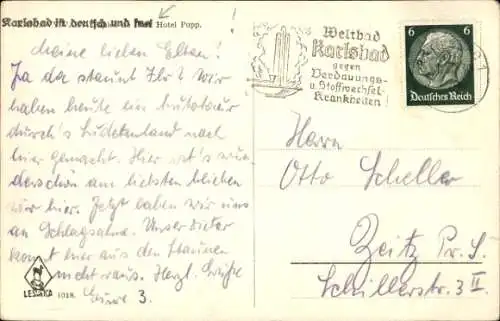 Karlsbad ist deutsch und frei Hotel Pupp.
Meine lieben Eltern!
Ja da staunt Ihr! Wir
haben heute eine Autotour
durch's Sudetenland nach
hier gemacht. Hier ist's wun-
derschön am liebsten blieben
wir hier. Jetzt laben wir uns
an Schlagsahne. Unser Dieter
kommt hier aus den Staunen
nicht raus. Herzl. Grüße
Eure 3.
LESKKA 1018.
Weltbad
Karlsbad
gegen
Verdauungs-
u. Stoffwechsel-
Krankheiten
6 6
Deutsches Reich
Herrn
Otto Scheller
Zeitz Pr. S.
Schillerstr. 3 II